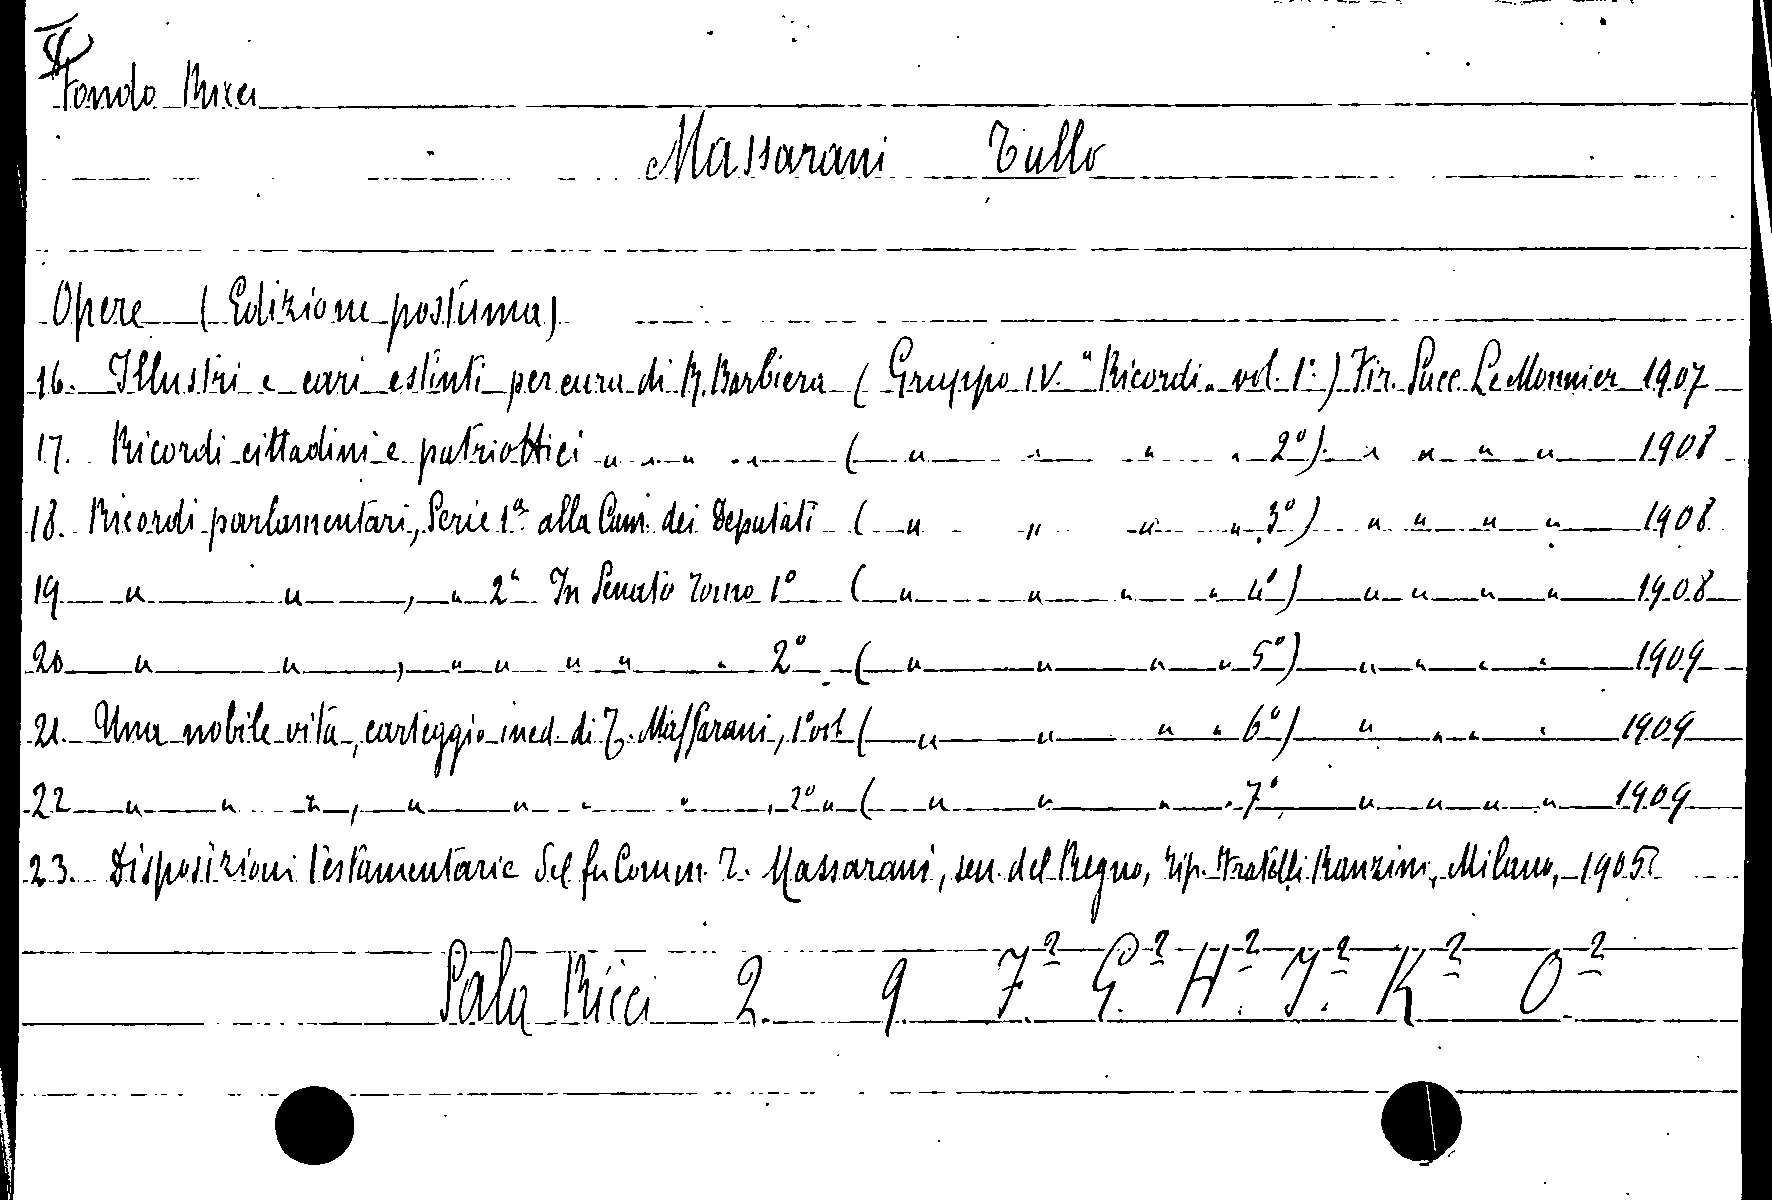 II
Fondo Ricci
Massarani Tullo
Opere (Edizione postuma)
16. Illustri e cari estinti per cura di R. Barbiera (Gruppo IV. "Ricordi" vol. 1°) Fir. Succ. Le Monnier 1907
17. Ricordi cittadini e patriottici " " " " " ( " " " " 2°) " " " " 1908
18. Ricordi parlamentari, Serie 1ª alla Cam. dei Deputati ( " " " " 3°) " " " " 1908
19 " " , " 2ª In Senato Tomo 1° ( " " " " 4°) " " " " 1908
20 " " , " " " " " 2° ( " " " " 5°) " " " " 1909
21. Una nobile vita, carteggio ined. di T. Massarani, 1° vol. ( " " " " 6°) " " " " 1909
22 " " " , " " " " , 2° " ( " " " " 7° " " " " 1909
23. Disposizioni testamentarie del fu Comm. T. Massarani, sen. del Regno, Tip. Fratelli Ranzini, Milano, 1905
Sala Ricci 2. 9. F.2 G.2 H.2 I.2 K2 O.2